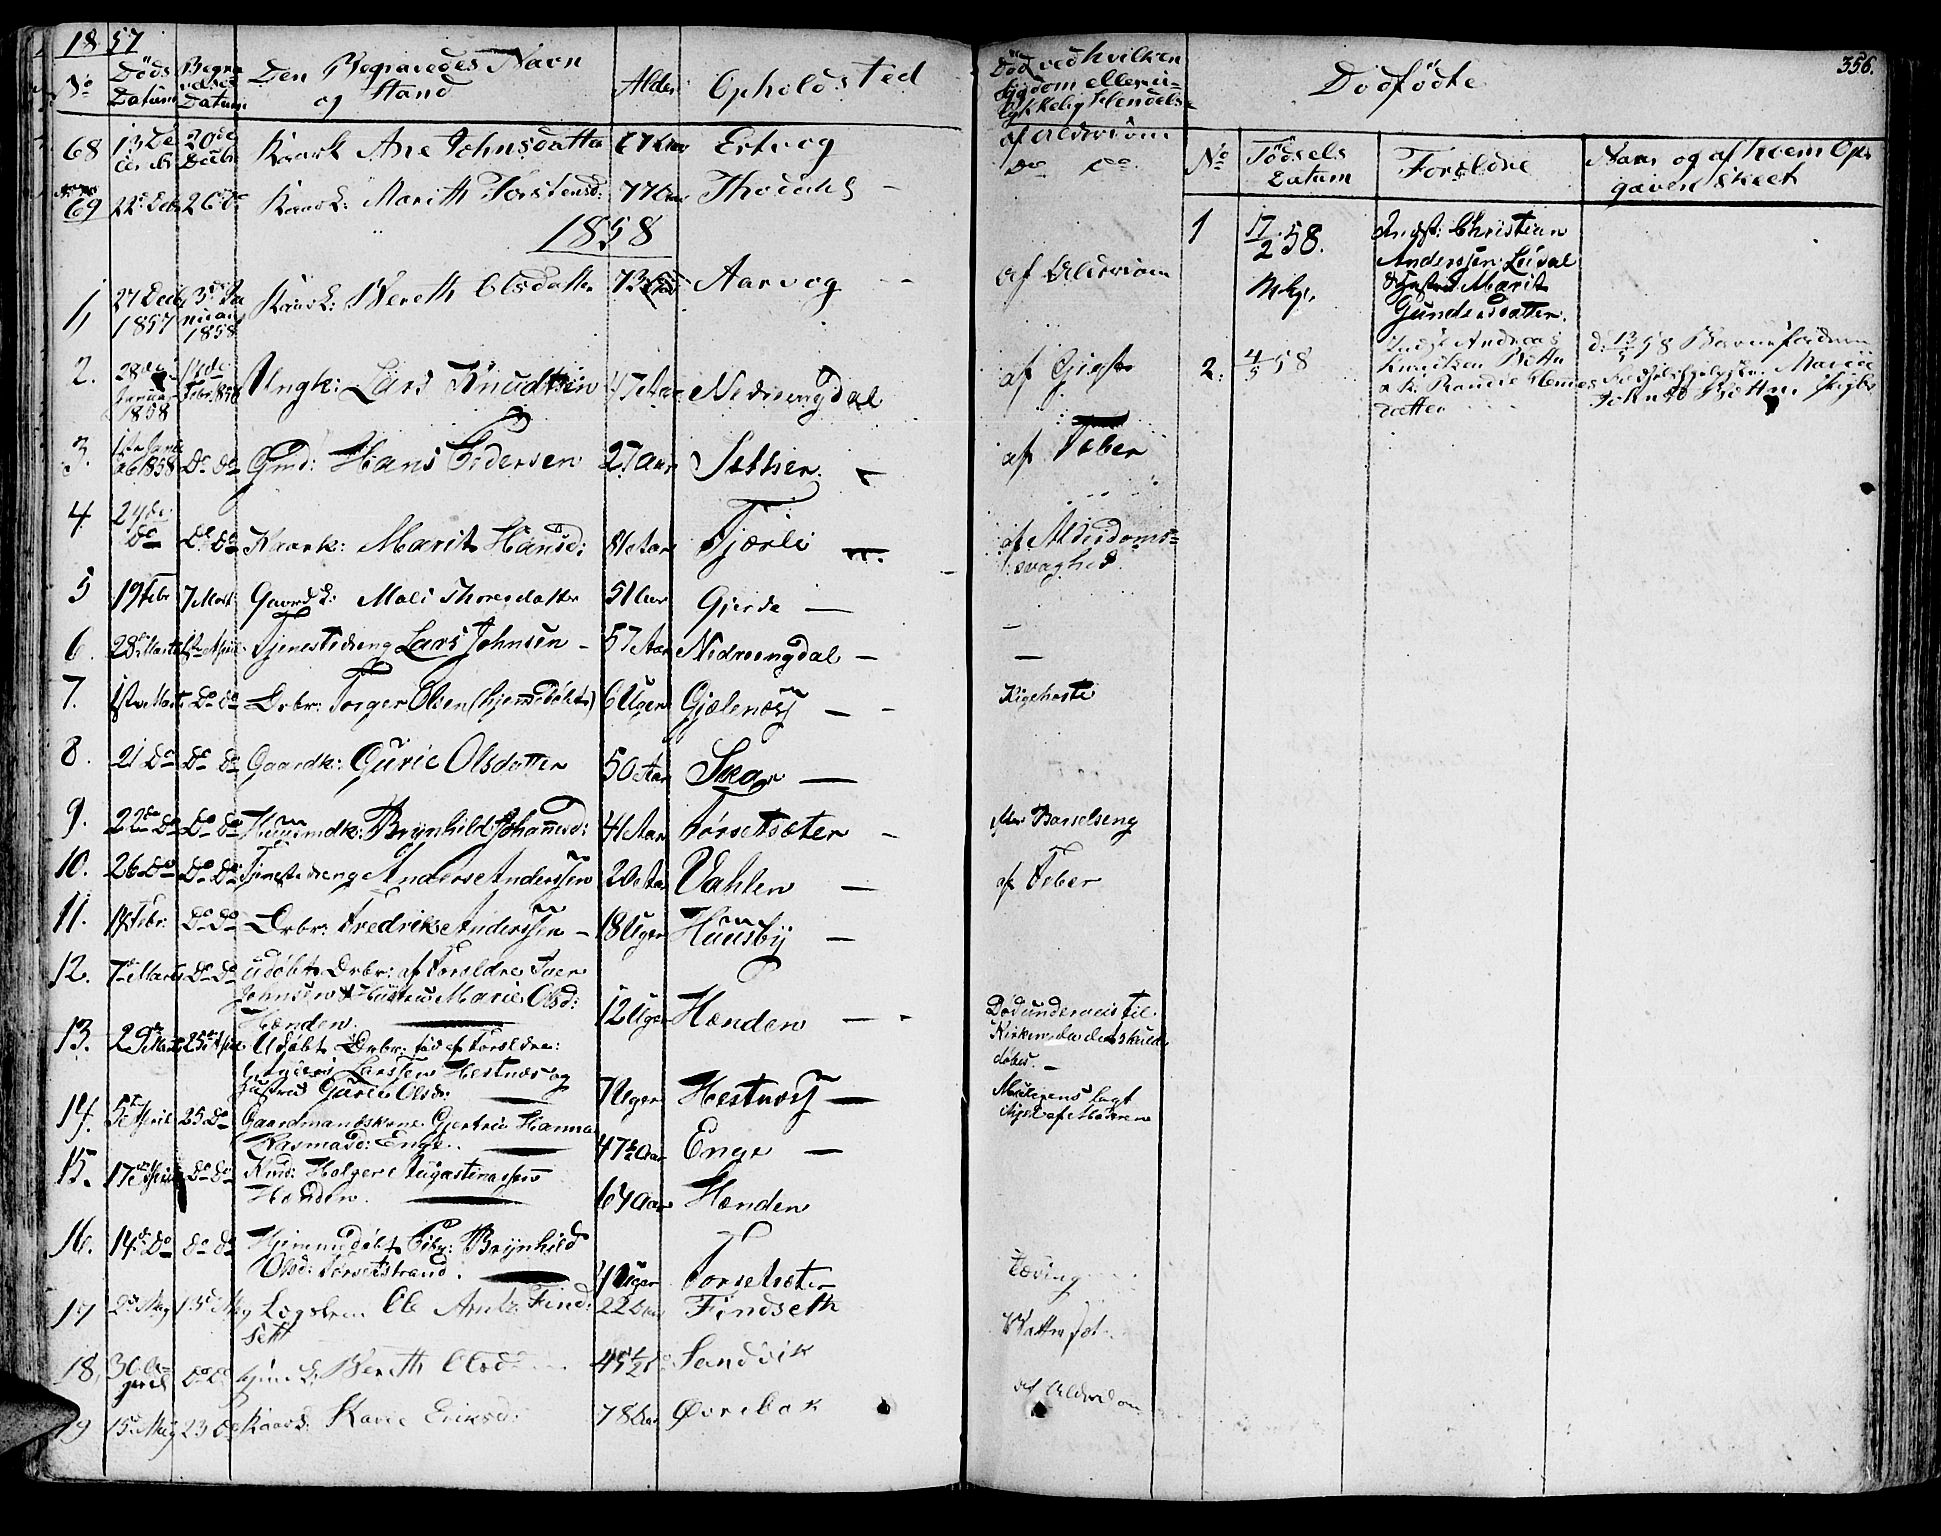 1857
356.
No Døds Datum Begravelses Datum Den Begravedes Navn og Stand Alder Opholdsted Død ved hvilken Sygdom eller ulykkelig Hendelse
Dødfødte
68 13 De cebr 20de Decbr Kaark Ane Johnsdatter 67 Aar Ertvog af Alderdom
69 22de Decb 26 do Kaark: Marith Torstensd: 77 Aar Thodahl — Do Do
1858
1, 27 Decb 1857 3die Januar 1858 Kaark: Bereth Olsdatter 73 Aar Aarvog — af Alderdom
2. 28de Januar 1858 14de Febr. 1858 Ungk: Lars Knudtsen 47 Aar Nedreengdal af Gigt
3. 1858 Do Do Gmd: Hans Pedersen 27 Aar Sether — af Feber
4 24de Do Do Do Kaark: Marit Hansd: 81 Aar Tjerli — af Alderdoms=
svaghed
5 19 Febr 7 Mart: Gaardk: Mali Thoresdatter 51 Aar Gjerde — —
6. 28de Marts 1ste April Tjenestedreng Lars Johnsen — 57 Aar Nedreengdal — —
7. 1ste Marts Do Do Drbr: Torger Olsen (hjemmedøbt) 6 Uger Gjelenæs — Kighoste
8. 21 Do Do Do Gaardk: Gurie Olsdatter 50 Aar Skar —
9. 22de Do Do Do Huusmdk: Brynhild Johannesd: 41 Aar Torsetsæter — efter Barselseng
10. 26 Do Do Do Tjenestedreng Anders Anderssen 20 Aar Vahlen — af Feber
11. 14 Febr: Do Do Drbr: Fredrik Anderssen — 18 Uger Huusby —
12. 7de Marts Do Do Udøbt Drbr: af Forældre Iver
Johnsen & Hustru Marie Olsd:
Henden. 12 Uger Henden — Død underveis til
Kirken, da det skulde
døbes. —
13. 29 Marts 25de April Udøbt Drbr: fød af Forældre:
Larssen Hestnæs og
Hustru Gurie Olsdr: 7 Uger Hestnæs — Moderens Lagt
ihjel af Moderen
14. 5te April 25 Do Gaardmandskone Gjertrue Hanna
Rasmusd: Enge. 47½ Aar Enge —
15. 17de April Do Do Kmd: Holger Augustinussen
Henden. 64 Aar Henden
16. 14de Do Do Do Hjemmedøbt Pibr: Brynhild
Olsd: Torsetstrand. 4 Uger Torsetsæter Tæring
17 2de Maj 13de Maj Logskrm Ole Arnts: Find=
sett 22 Aar Findseth Vattersot
18, 30 April Do Do Bereth Olsd 45½ Sandvik
19 15de Maj 23 Do Kaard: Karie Eriksd: 78 Aar Øvrebak af Alderdom
No Fødsels Datum Forældre Navn og af hvem Opgaven skeet
1 17/2 58. Mkj. Indst: Christian
Anderssen Leidal
& Hustru Marit
Gundersdatter.
2. 4/5 58 Andreas
Knudsen Botten
Randie Clemets
datter
d: 13/5 58 Barnefaderen
Marie
Johnsd Botten